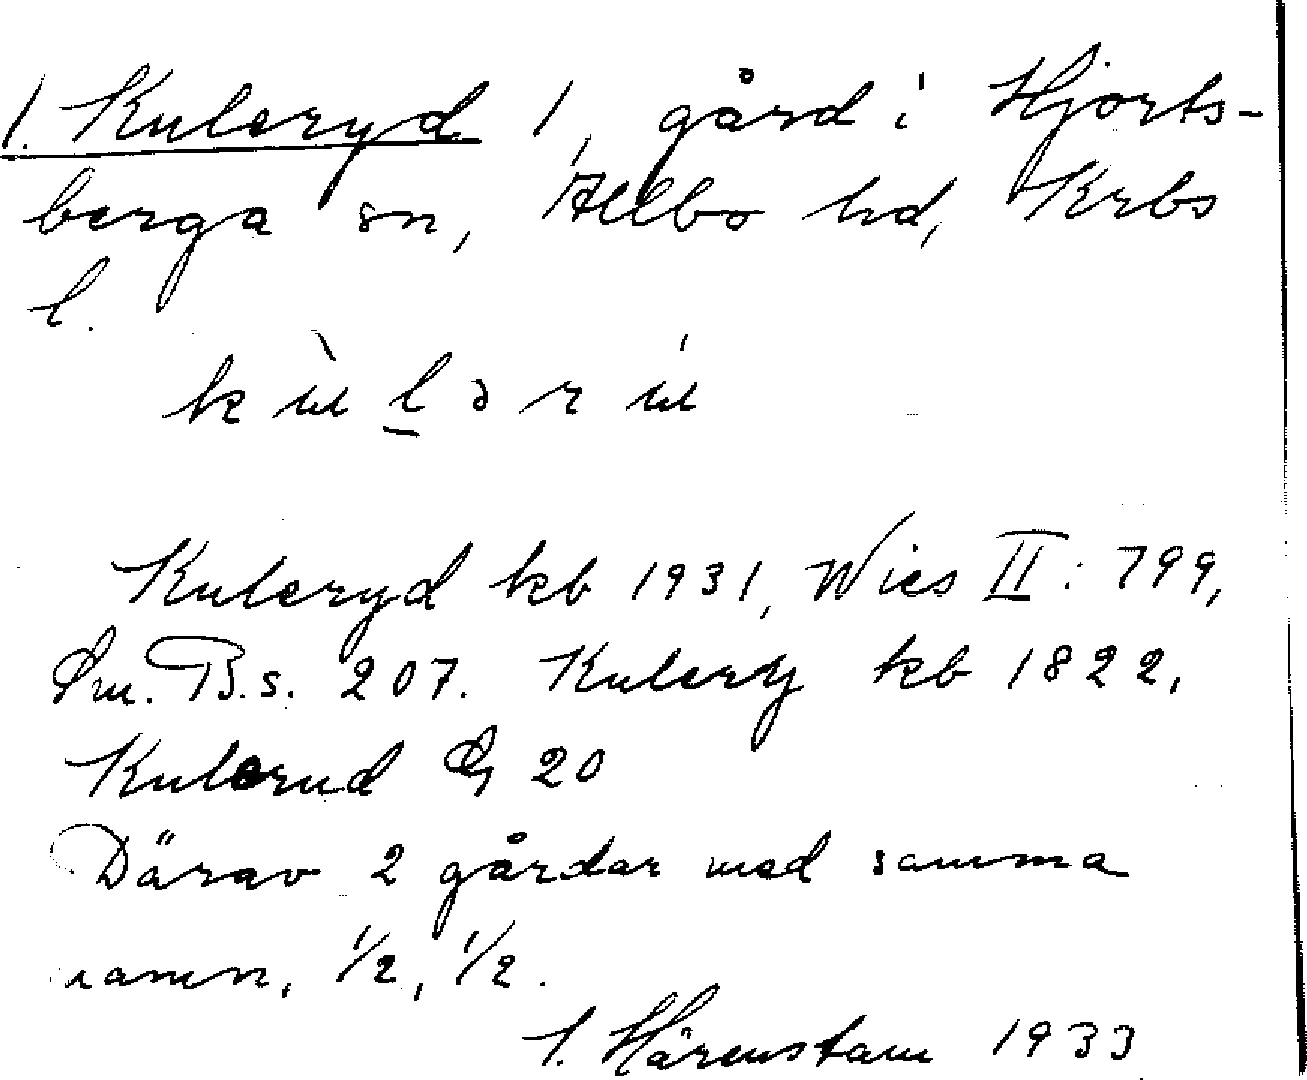 1. Kuleryd 1, gård i Hjorts-
berga sn, Allbo hd, Krbs
l.
Kuleryd kb 1931, Wies II: 799,
Sm. B. s. 207. Kulery kb 1822,
Kulerud G 20
Därav 2 gårdar med samma
namn, 1/2, 1/2.
Härenstam 1933